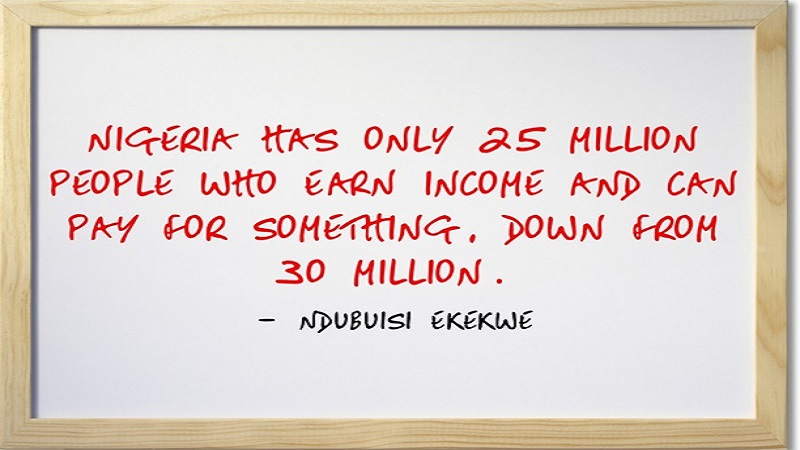 NIGERIA HAS ONLY 25 MILLION
PEOPLE WHO EARN INCOME AND CAN
PAY FOR SOMETHING, DOWN FROM
30 MILLION.
- NDUBUISI EKEKWE